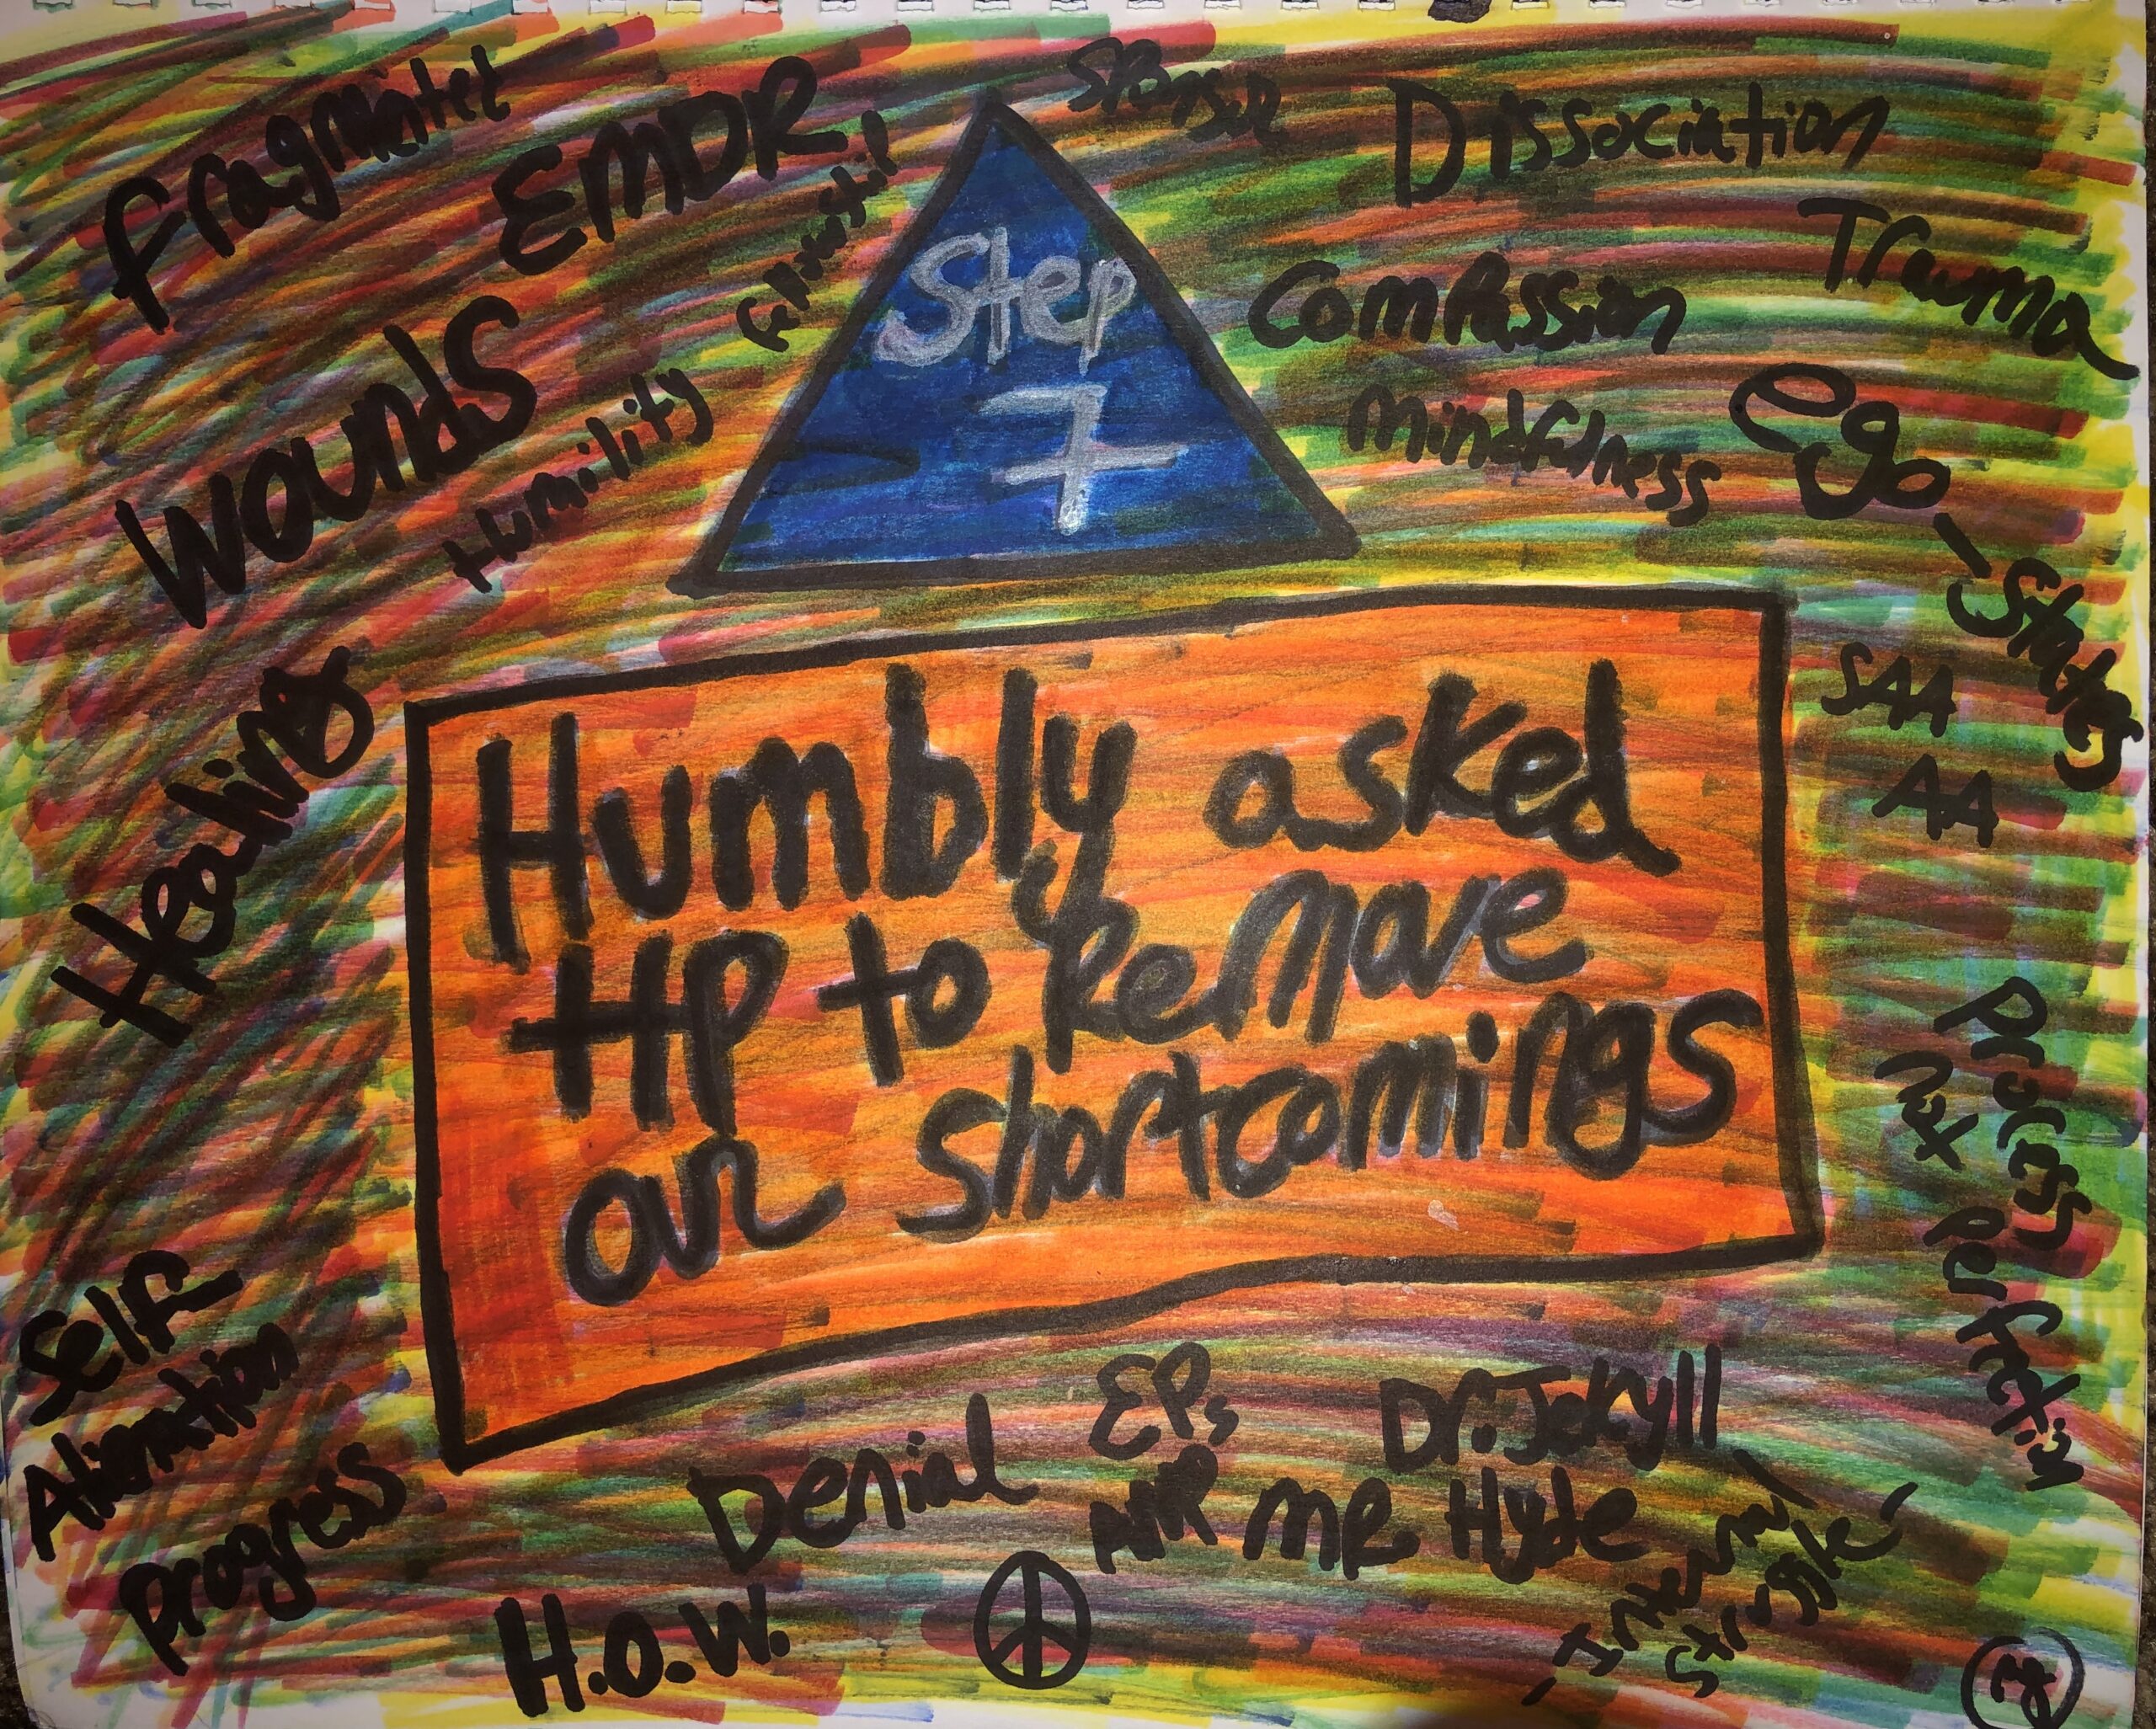 Fragmented
EMDR
Sponsor
Dissociation
Trauma
Step
7
Compassion
Mindfulness
Ego
-States
Wounds
Humility
SAA
AA
Healing
Humbly asked
HP to Remove
our Shortcomings
Process
Not
Perfection
Self
Alienation
Progress
H.O.W.
Denial
EPs
ANP
Dr. Jekyll
MR Hyde
-Internal
Struggle-